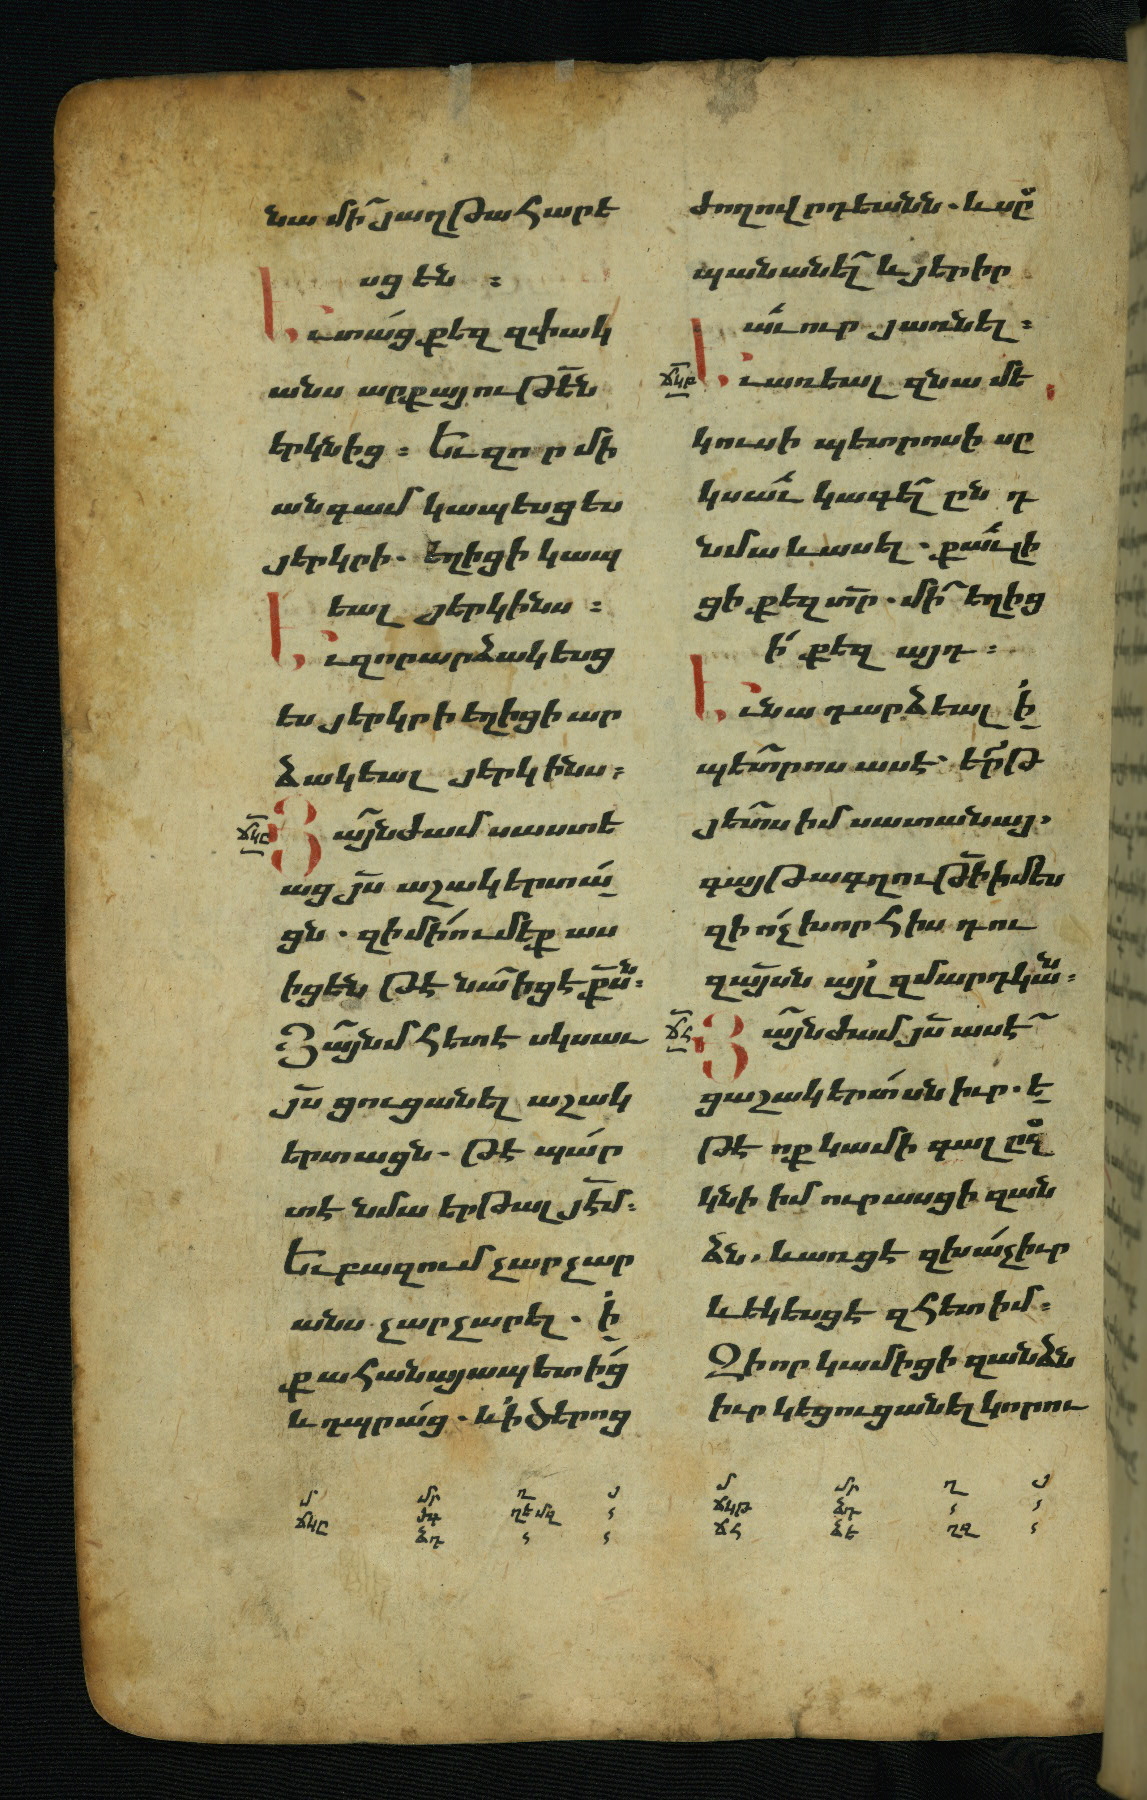 նա մի՛ յաղթահարէ
սցեն ։
Եւ տաց քեզ զփակ
անս արքայութեն
երկնից ։ Եւ զոր մի
անգամ կապեսցես
յերկրի . եղիցի կապ
եալ յերկինս ։
Եւ զոր արձակեսց
ես յերկրի եղիցի ար
ձակեալ յերկինս ։
ՃԿԸ Յայնժամ սաստե
աց յս աշակերտա
ցն . զի մի՛ ումեք աս
իցեն թէ նա իցէ քսն ։
Յայնմ հետէ սկսաւ
յս ցուցանել աշակ
երտացն . թէ պար
տէ նմա երթալ յէմ ։
Եւ բազում չարչար
անս չարչարել . ի
քահանայապետից
և դպրաց . և ի ծերոց
ժողովրդեանն . և սպ
պանանել և յերիր
աւուր յառնել ։
ՃԿԹ Եւ առեալ զնա մե
կուսի պետրոսի սը
կսաւ կագել ընդ
նմա և ասել . քաւ լի
ցի քեզ տր . մի՛ եղից
ի քեզ այդ ։
Եւ նա դարձեալ ի
պետրոս ասէ՝ երթ
յետս իմ սատանայ .
գայթագղութի իմ ես
զի ո՛չ խորհիս դու
զայսն այլ զմարդկան ։
ՃՀ Յայնժամ յս ասէ
ցաշակերտսն իւր . ե
թէ ոք կամի գալ ըզ
կնի իմ ուրասցի զան
ձն . և առցէ զխաչ իւր
և եկեսցէ զհետ իմ ։
Զի որ կամիցի զանձն
իւր կեցուցանել կորու
մ մր ղ յ
ՃԿԸ ՁԳ ՂԵ ՄԶ
ՁԴ
մ մր ղ յ
ՃԿԹ ՁԴ
ՃՀ ՁԵ ՂԶ